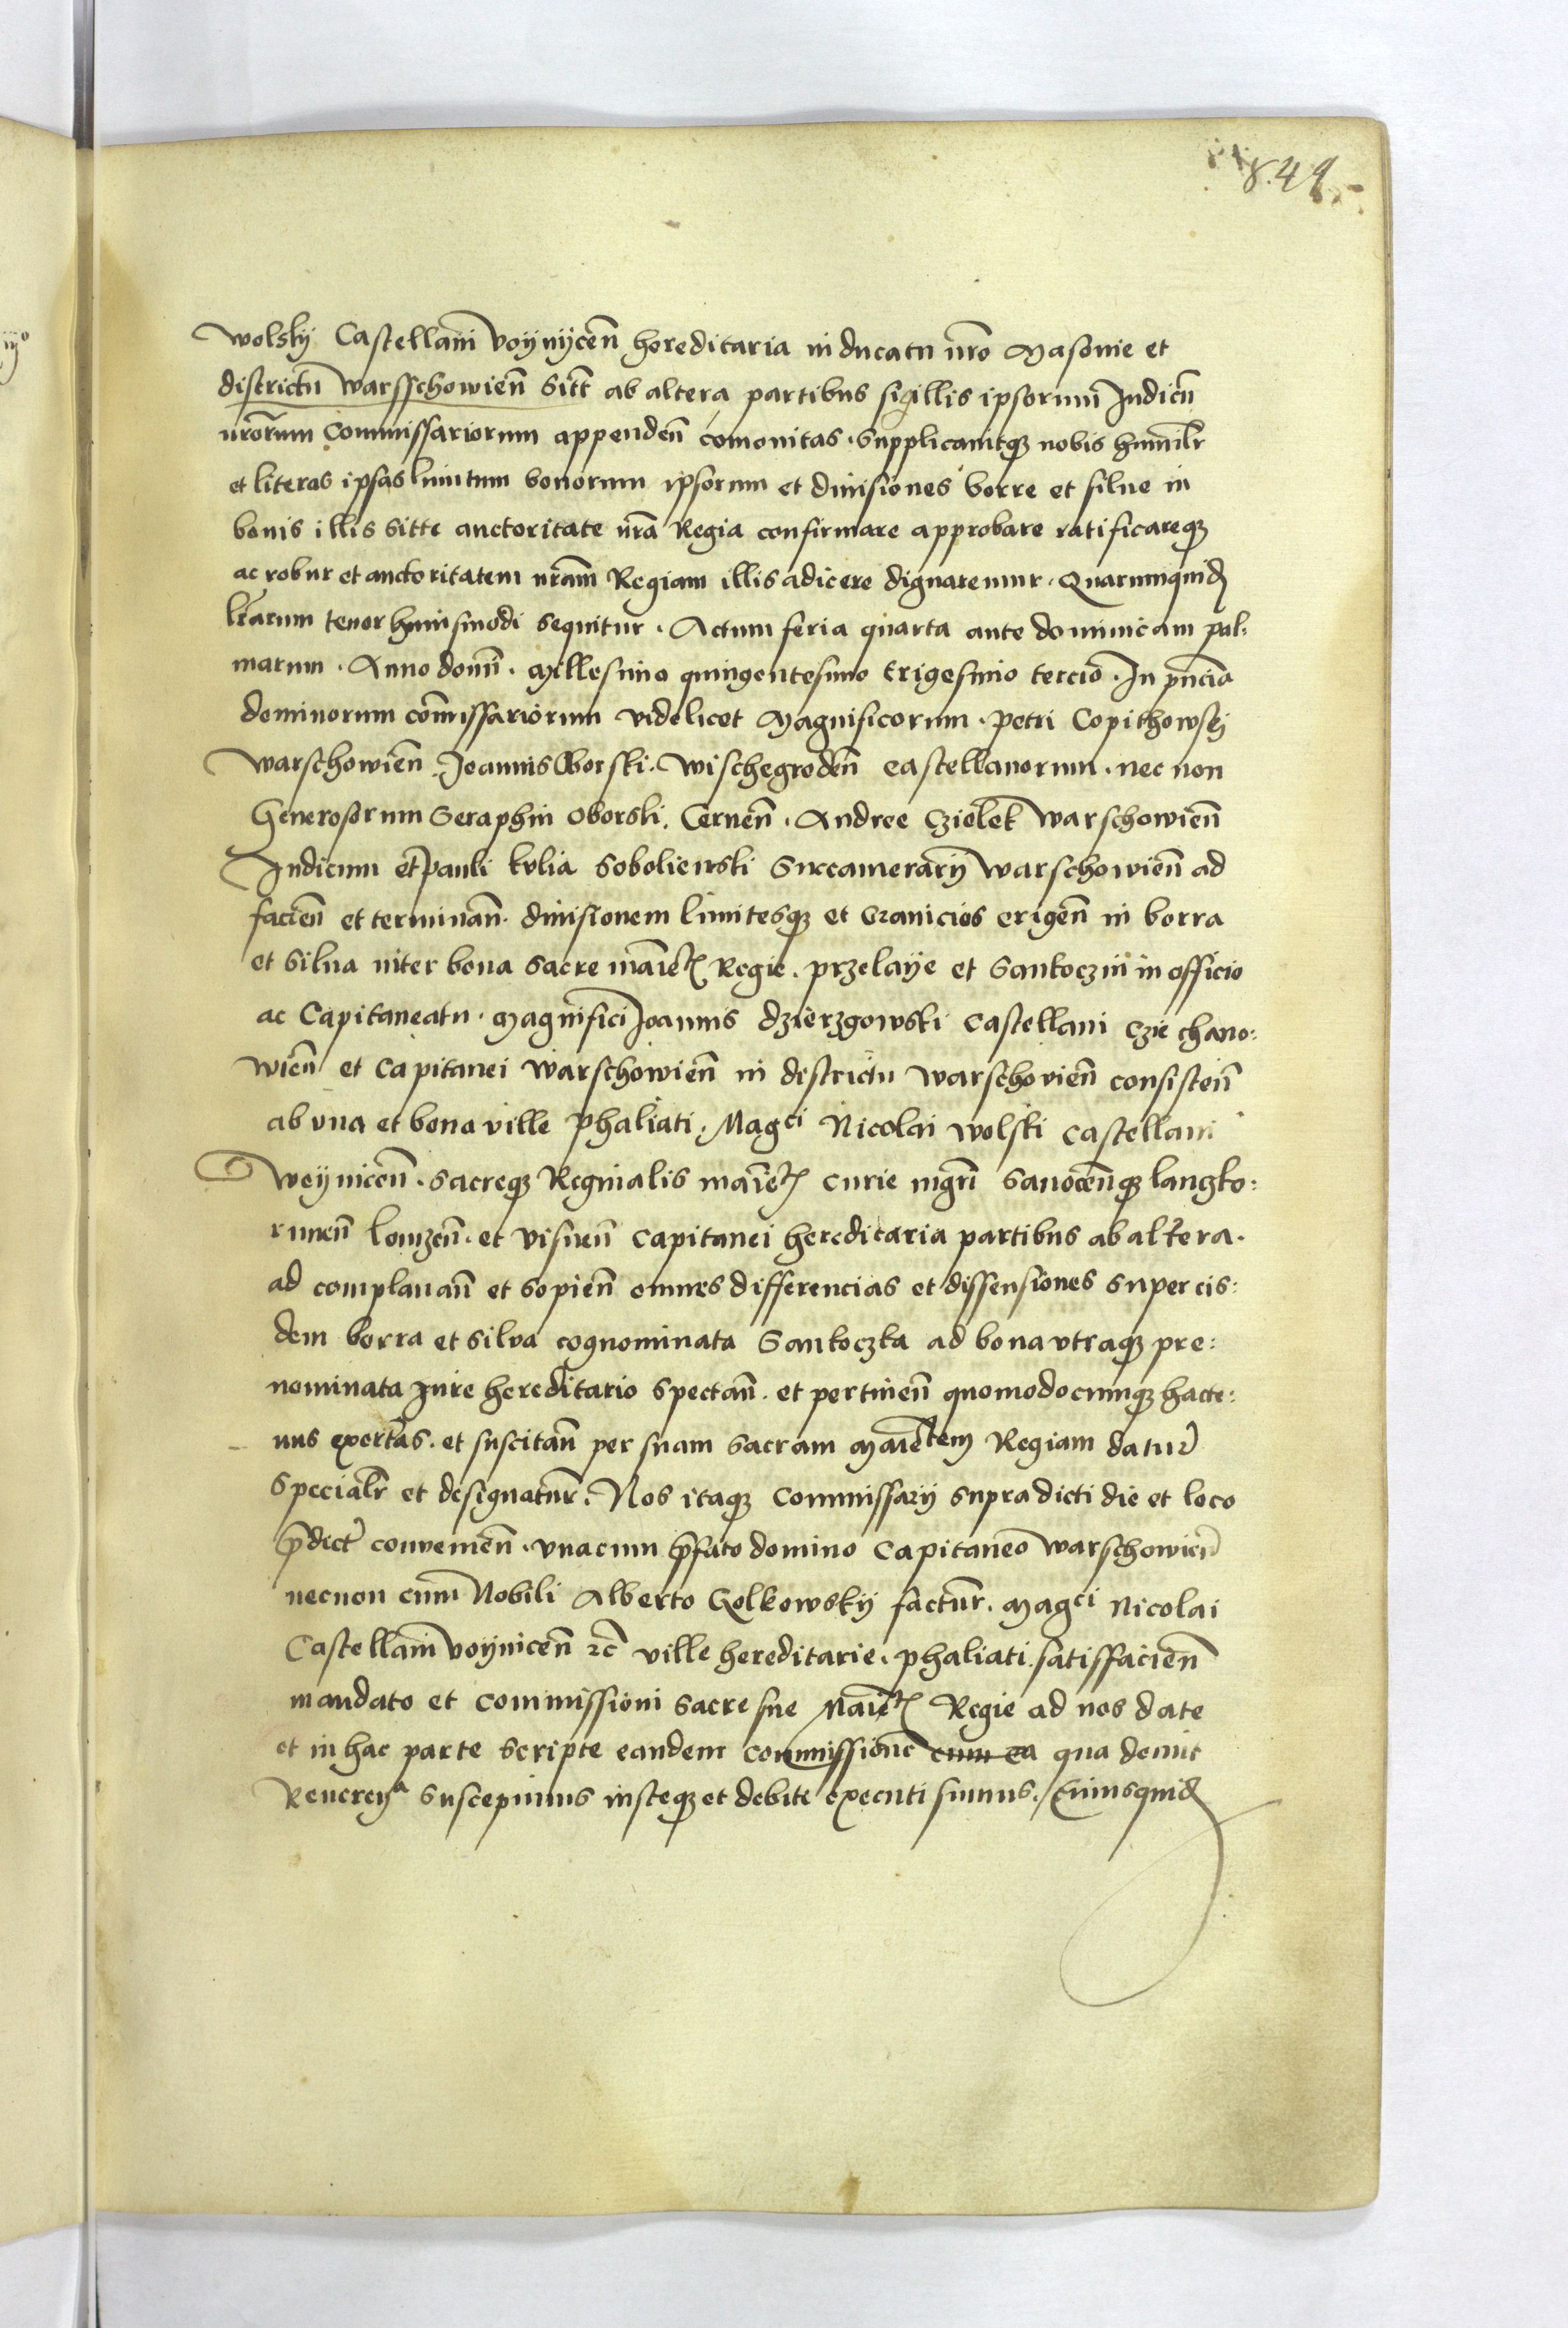 849
wolskÿ Castellani voÿnÿceñ hereditaria in ducatu nr̃o Masovie et
districtu warsschowieñ Sitt̃ ab altera partibus sigillis ipsorum Iudicũ
nr̃orum Commissariorum appendeñ comonitas. Supplicavitqȝ nobis humilr̃
et literas ipsas limitum bonorum ipsorum et divisiones borre et silue in
bonis illis Sitte auctoritate nr̃a Regia confirmare approbare ratificareqȝ
ac robur et auctoritatem nr̃am Regiam illis adicere dignaremur. Quarumquid̃
lr̃arum tenor huiusmodi sequitur. Actum feria quarta ante dominicam pal:
marum. Anno domĩ. Millesimo quingentesimo trigesimo tercio. In pñcia
dominorum com̃issariorum videlicet Magnificorum. Petri Copithowskj
warschowieñ Joannis Oborski. Wischegrodeñ castellanorum. nec non
Generosorum Seraphin Oborski. Cerneñ. Andree Cziolek warschowieñ
Iudicum et Pauli kulia Soboliewski Succamerarÿ warschowieñ ad
facieñ et terminañ. divisionem limitesqȝ et Granicies erigeñ in borra
et Silua inter bona Sacre maiet̃ Regie. przelaÿe et Santoczin in officio
ac Capitaneatu. Magnifici Joannis dzierzgowski Castellani Cziechano:
wieñ et Capitanei warschowieñ in districtu warschovieñ consisteñ
ab vna et bona ville phaliati. Magci Nicolai wolski Castellani
woÿniceñ. Sacreqȝ Reginalis maiet̃ curie mgrĩ Sanoceñqȝ lanczko:
runeñ lomzeñ. et visneñ Capitanei hereditaria partibus ab altera.
ad complanañ et sopieñ omnes differencias et dissensiones super eis:
dem borra et silva cognominata Santoczka ad bona vtraqȝ pre:
nominata Iure hereditario spectañ. et pertineñ quomodocumqȝ hacte:
nus exortas. et suscitañ per suam sacram Maiestatem Regiam datur̃
Specialr̃ et designatur̃. Nos itaqȝ Commissarÿ supradicti die et loco
p̃dict̃ convenieñ. vnacum p̃fato domino Capitaneo warschowieñ
necnon cum Nobili Alberto Golkowskÿ factur̃. Magci Nicolai
Castellani voÿniceñ ꝛc̃ ville hereditarie. phaliati. satisfacieñ
mandato et commissioni Sacre sue Maiet̃ Regie ad nos date
et in hac parte scripte eandem commissione cum ea qua decuit
Reverenª suscepimus iusteqȝ et debite executi sumus. Cuiusquid̃